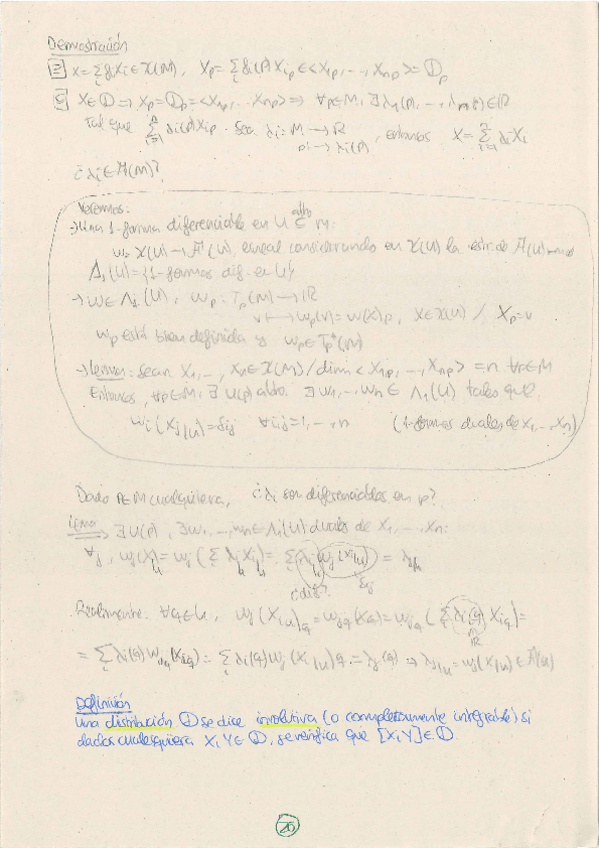 Demostración
⊇ X=∑fiXi∈𝔛(M), Xp=∑fi(p)Xip∈<X1p,…,Xnp>=𝒟p
⊆ X∈𝒟 ⟹ Xp∈𝒟p=<X1p,…,Xnp> ⟹ ∀p∈M, ∃λ1(p),…,λn(p)∈ℝ
tal que ∑λi(p)Xip. Sea λi: M→ℝ, entonces X=∑λiXi
p↦λi(p)
¿λi∈ℱ(M)?
Veremos:
→ Una 1-forma diferenciable en U ⊂ M:
abto
w: 𝔛(U)→ℱ(U), lineal considerando en 𝔛(U) la estr. de ℱ(U)
Λ1(U)={1-formas dif. en U}
→ w∈Λ1(U), wp: Tp(M)→ℝ
v↦wp(v)=w(X)p, X∈𝔛(U) / Xp=v
wp está bien definida y wp∈Tp*(M)
→ Lema: Sean X1,…,Xn∈𝔛(M)/dim<X1p,…,Xnp>=n ∀p∈M
Entonces, ∀p∈M, ∃U(p) abto. ∃w1,…,wn∈Λ1(U) tales que
wi(Xj|U)=δij ∀i,j=1,…,n (1-formas duales de X1,…,Xn)
Dado p∈M cualquiera, ¿λi son diferenciables en p?
Lema ⟹ ∃U(p), ∃w1,…,wn∈Λ1(U) duales de X1,…,Xn:
∀j, wj(X|U)=wj(∑λi|U Xi|U)=∑λi|U wj(Xi|U)=λj|U
¿dif? δij
Realmente: ∀q∈U, wj(X|U)q=wjq(Xq)=wjq(∑λi(q)Xiq)=
ℝ
=∑λi(q)wjq(Xiq)=∑λi(q)wj(Xi|U)q=λj(q) ⟹ λj|U=wj(X|U)∈ℱ(U)
Definición
Una distribución 𝒟 se dice involutiva (o completamente integrable) si
dados cualesquiera X,Y∈𝒟, se verifica que [X,Y]∈𝒟.